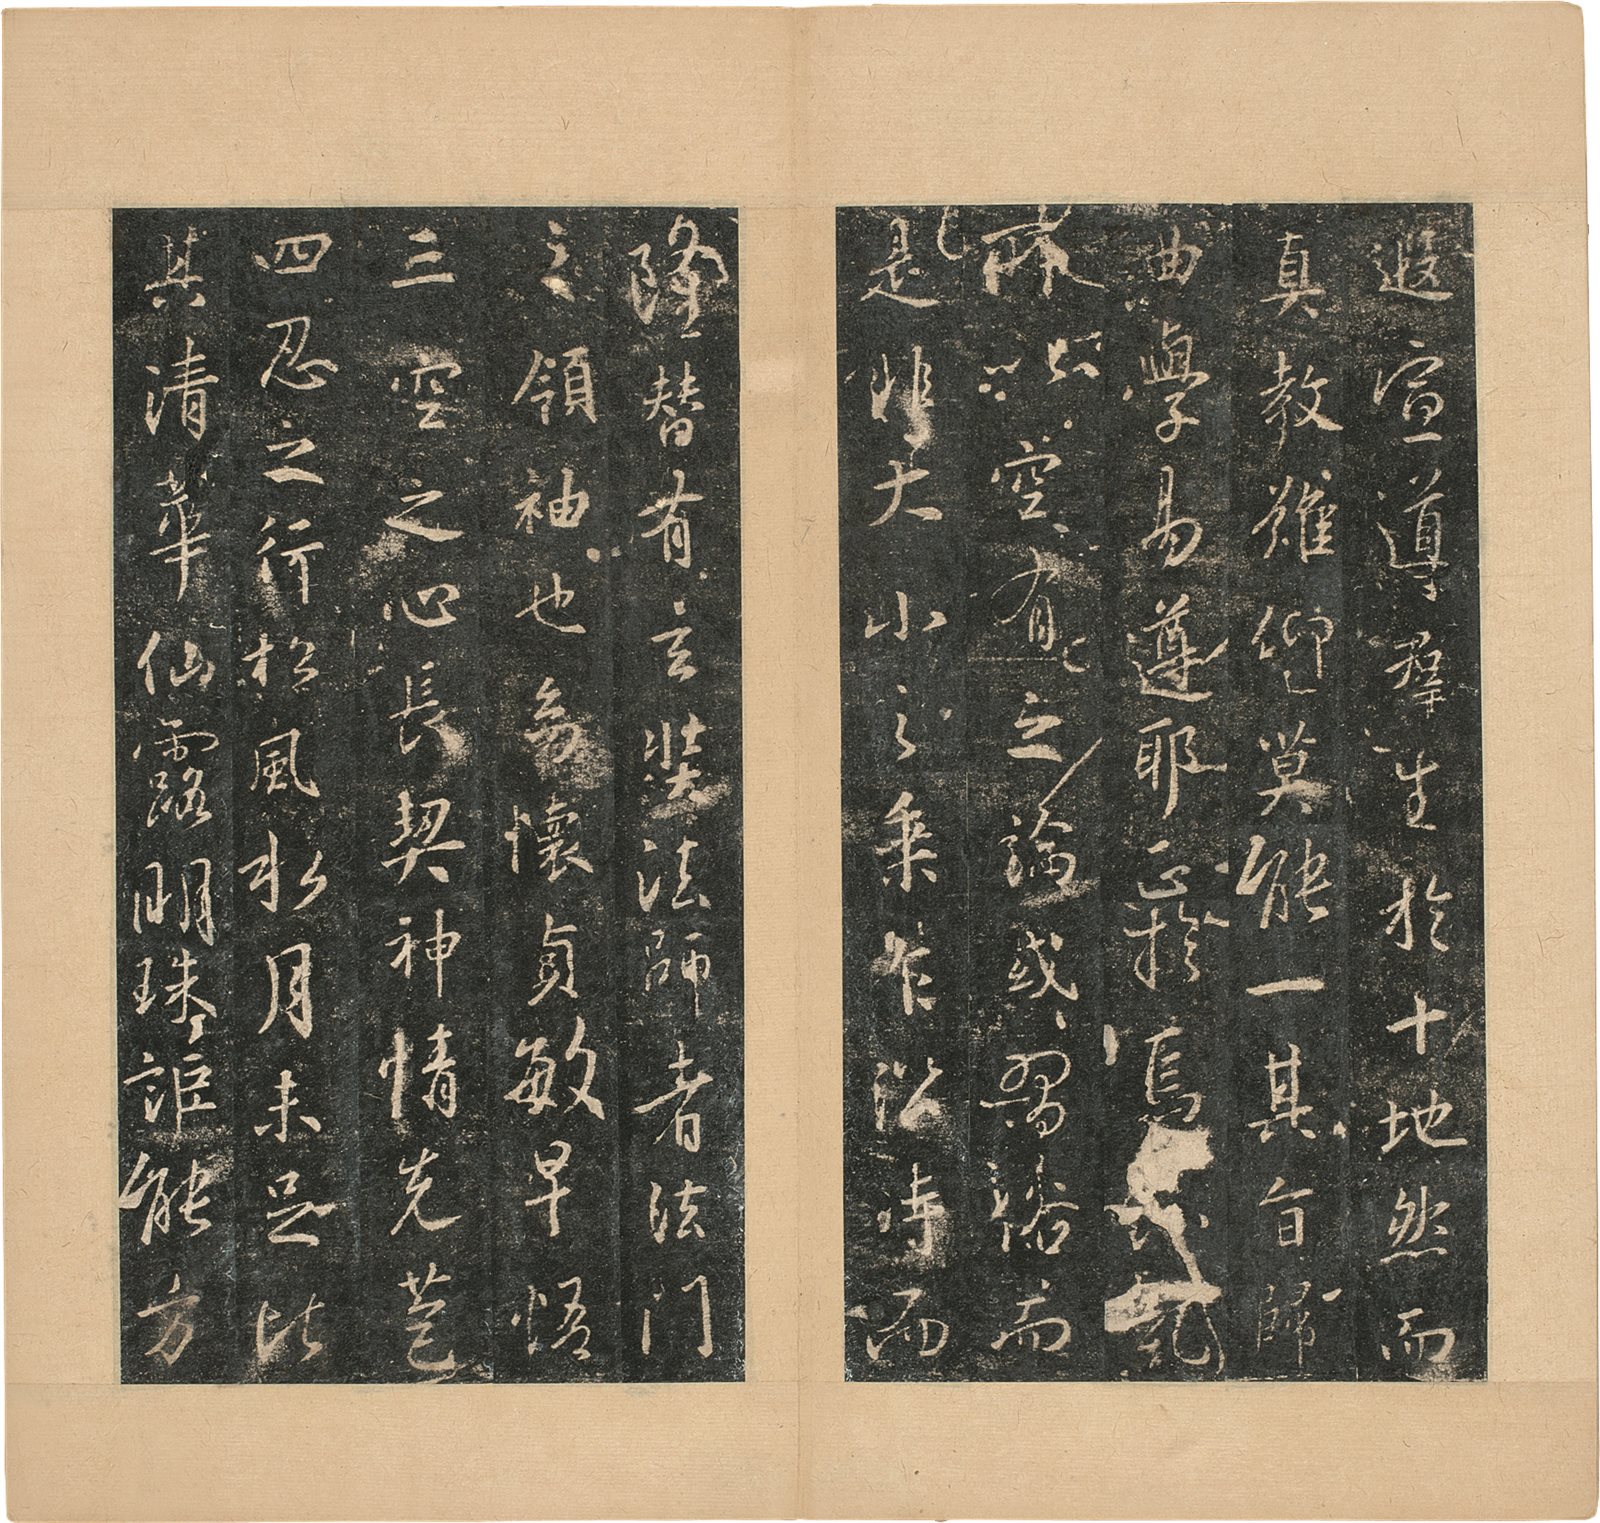 遐宣導羣生於十地然而
真教難仰莫能一其旨歸
曲學易遵耶正於焉糺
所以空有之論或習俗而
是非大小之乘乍沿時而
隆替有玄奘法師者法門
之領袖也幼懷貞敏早悟
三空之心長契神情先苞
四忍之行松風水月未足比
其清華仙露明珠詎能方